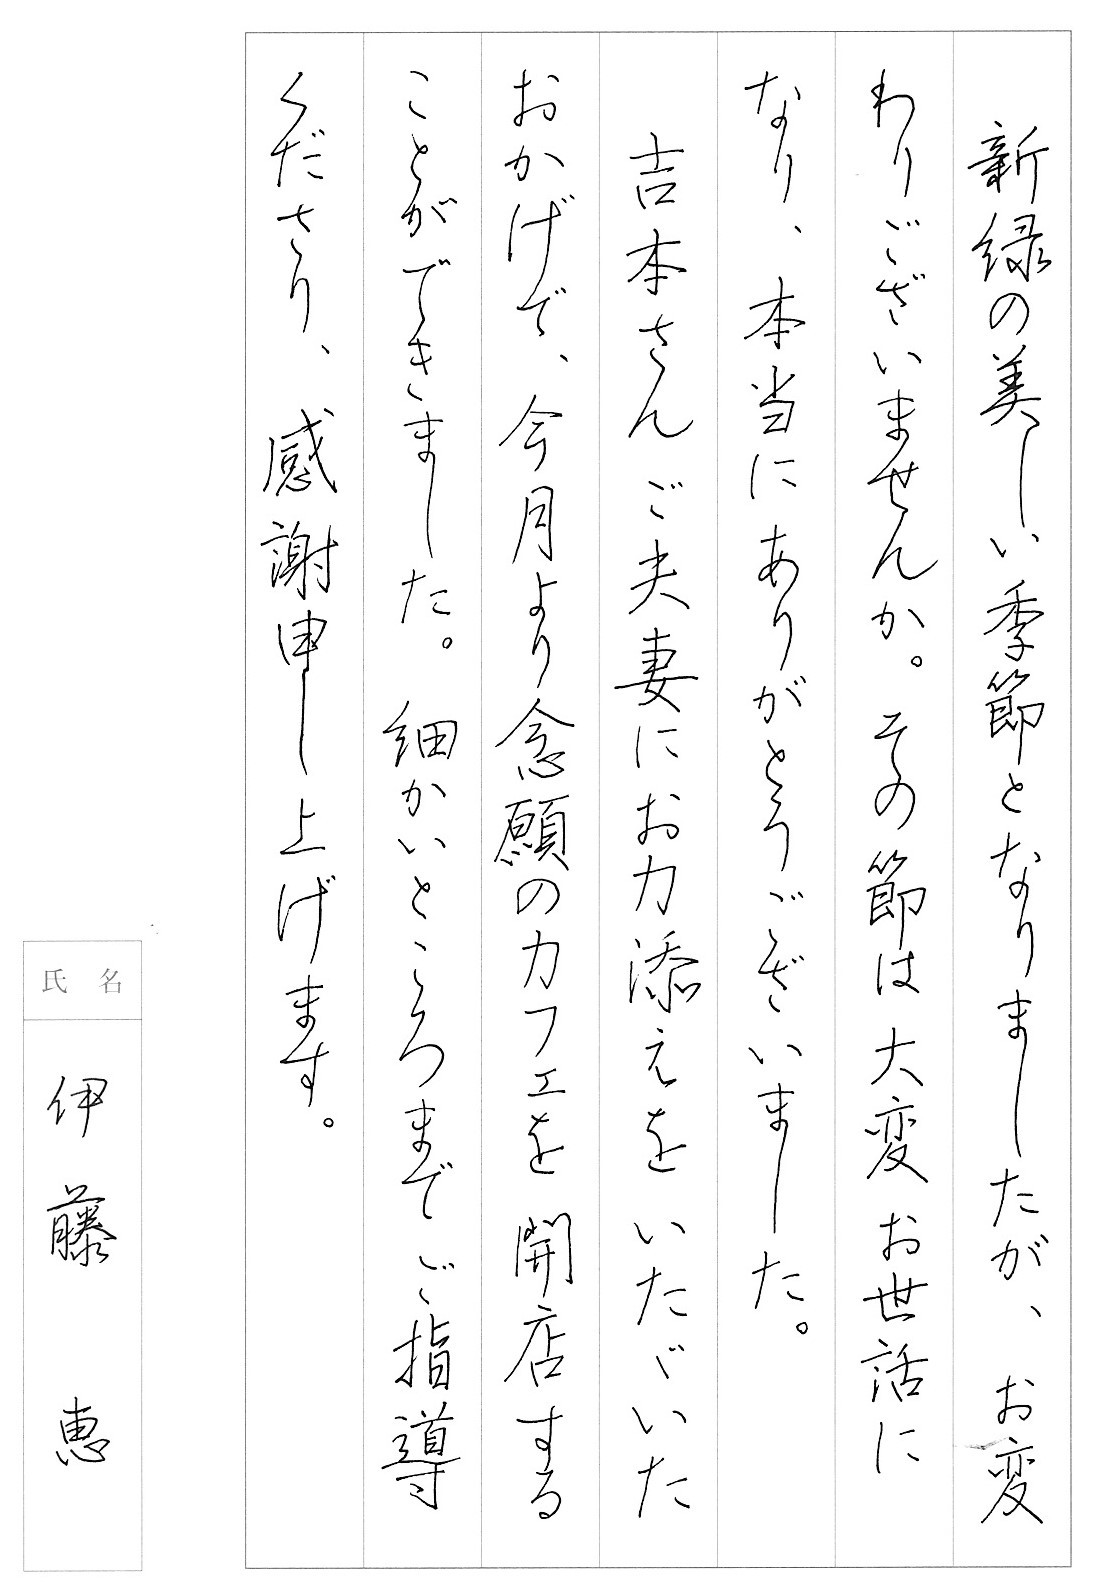 新緑の美しい季節となりましたが、お変
わりございませんか。その節は大変お世話に
なり、本当にありがとうございました。
吉本さんご夫妻にお力添えをいただいた
おかげで、今月より念願のカフェを開店する
ことができました。細かいところまでご指導
くださり、感謝申し上げます。
氏名
伊藤 恵